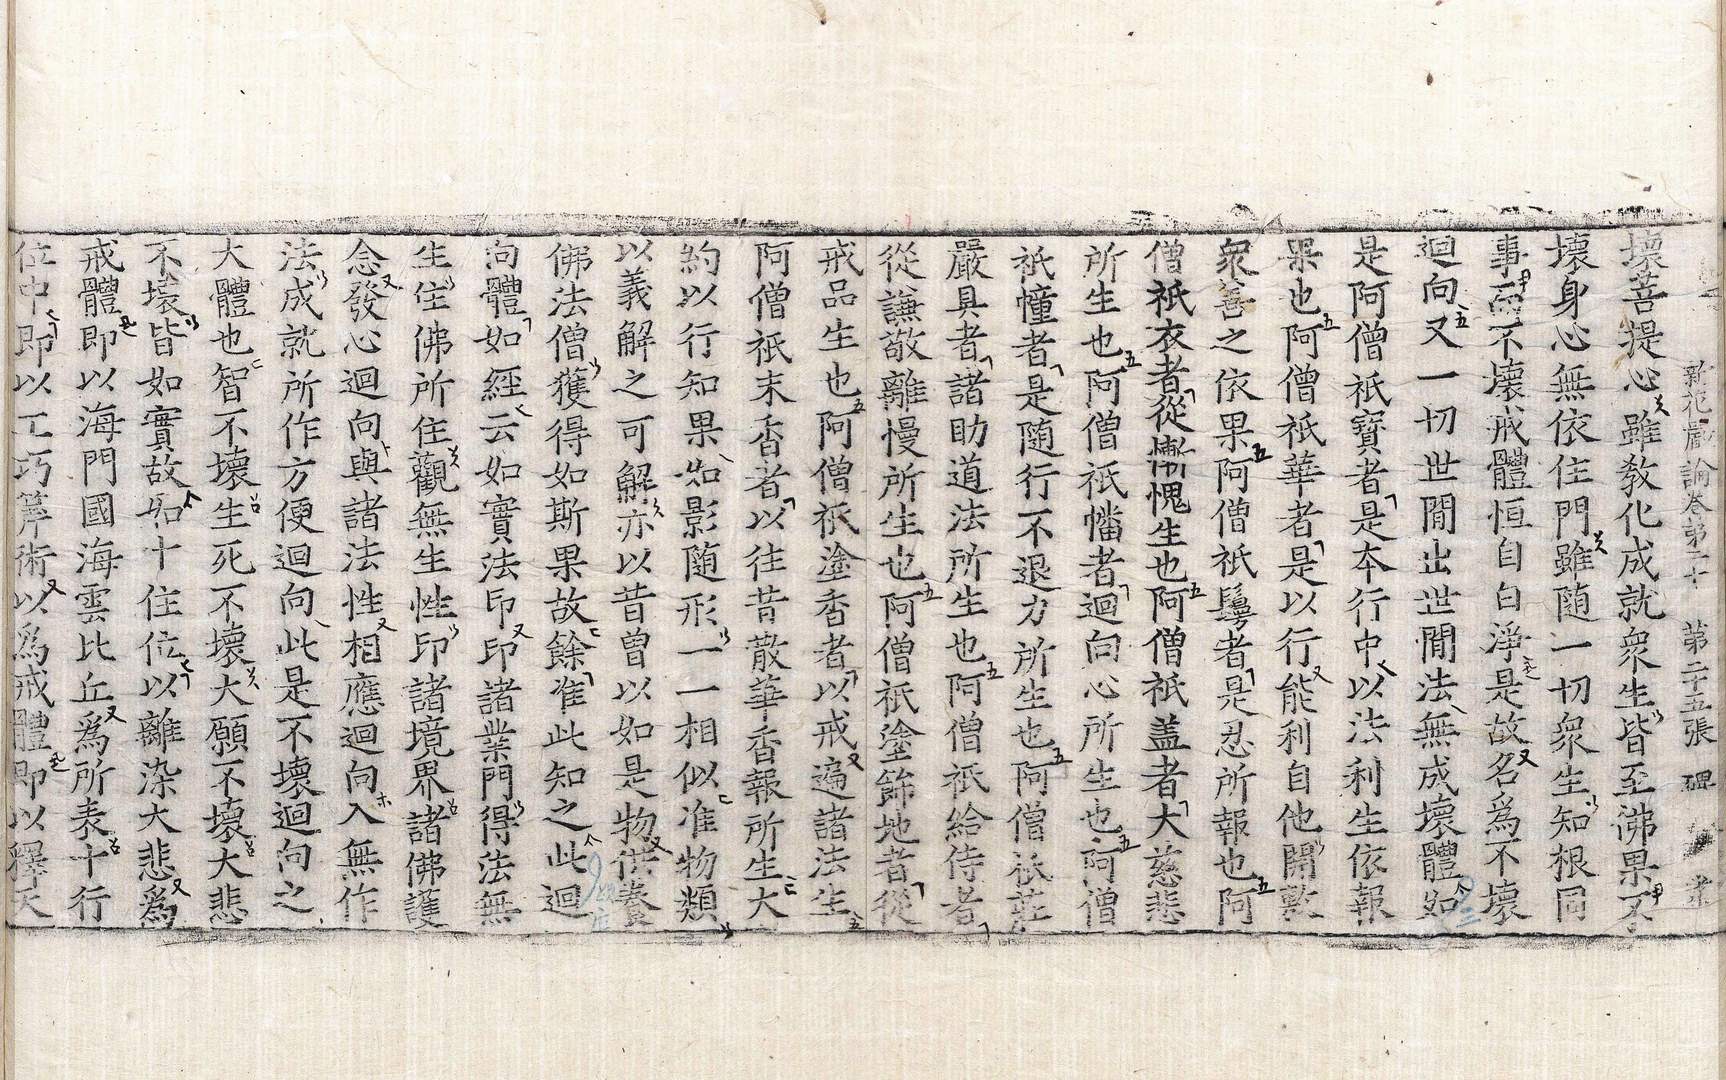 新花嚴論卷第二十 第二十五張 碑
壞菩提心雖教化成就衆生皆至佛果不
壞身心無依住門雖隨一切衆生知根同
事而不壞戒體恒自白淨是故名爲不壞
迴向又一切世間出世間法無成壞體如
是阿僧祇寶者是本行中以法利生依報
果也阿僧祇華者是以行能利自他開敷
衆善之依果阿僧祇鬘者是忍所報也阿
僧祇衣者從慚愧生也阿僧祇盖者大慈悲
所生也阿僧祇幡者迴向心所生也阿僧
祇幢者是随行不退力所生也阿僧祇莊
嚴具者諸助道法所生也阿僧祇給侍者
從謙敬離慢所生也阿僧祇塗飾地者從
戒品生也阿僧祇塗香者以戒遍諸法生
阿僧祇末香者以往昔散華香報所生大
約以行知果如影随形一一相似准物類
以義解之可解亦以昔曾以如是物供養
佛法僧獲得如斯果故餘准此知之此迴
向體如經云如實法印印諸業門得法無
生住佛所住觀無生性印諸境界諸佛護
念發心迴向與諸法性相應迴向入無作
法成就所作方便迴向此是不壞迴向之
大體也智不壞生死不壞大願不壞大悲
不壞皆如實故如十住位以離染大悲爲
戒體即以海門國海雲比丘爲所表十行
位中即以工巧筭術以爲戒體即以釋天